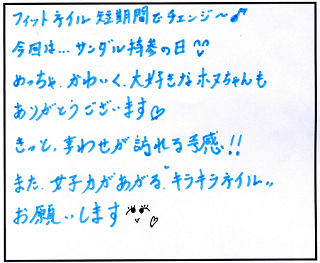 フィットネイル 短期間でチェンジ〜♪
今回は… サンダル持参の日♡
めっちゃ、かわいく、大好きなホヌちゃんも
ありがとうございます♡
きっと、幸わせが訪れる予感!!
また、女子力があがる、キラキラネイル、、
お願いします♡